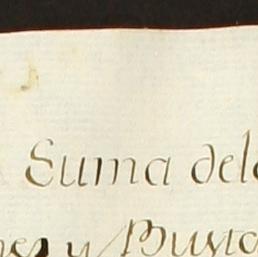 Suma dela
nes y Busto